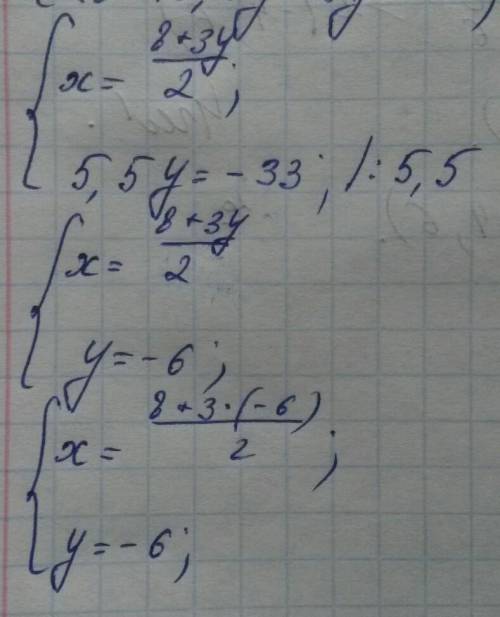 x = (8 + 3y)/2;
5,5y = -33; /: 5,5
x = (8 + 3y)/2
y = -6;
x = (8 + 3·(-6))/2;
y = -6;